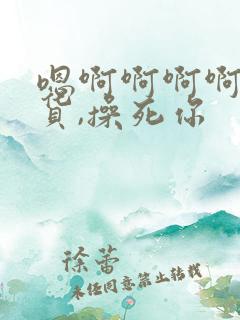 嗯啊啊啊啊
貨,操死你
徐蕾
未经同意禁止转载